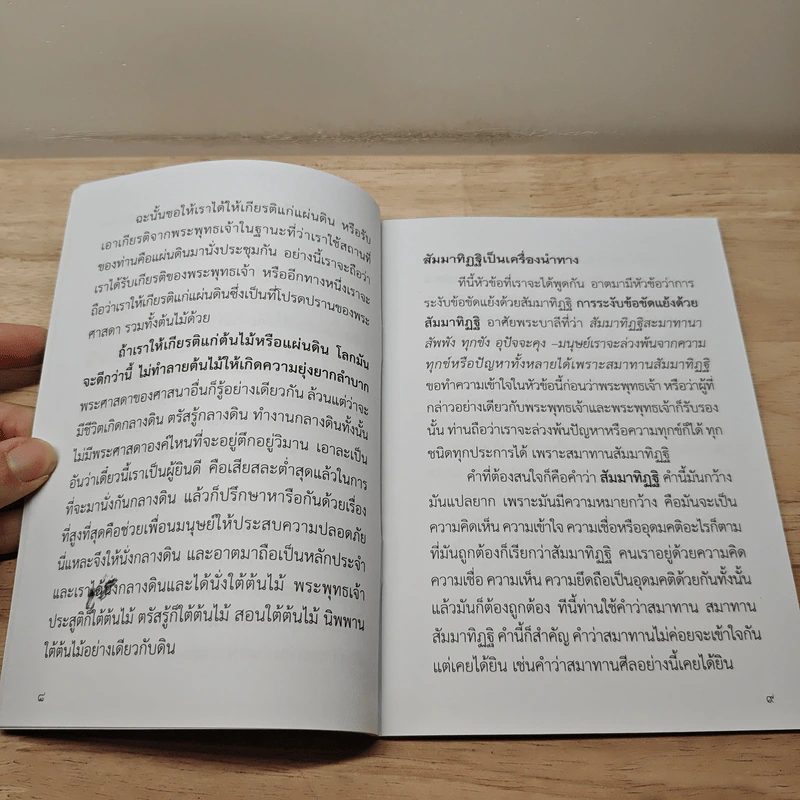 ฉะนั้นขอให้เราได้ให้เกียรติแก่แผ่นดิน หรือรับ
เอาเกียรติจากพระพุทธเจ้าในฐานะที่ว่าเราใช้สถานที่
ของท่านคือแผ่นดินมานั่งประชุมกัน อย่างนี้เราจะถือว่า
เราได้รับเกียรติของพระพุทธเจ้า หรืออีกทางหนึ่งเราจะ
ถือว่าเราให้เกียรติแก่แผ่นดินซึ่งเป็นที่โปรดปรานของพระ
ศาสดา รวมทั้งต้นไม้ด้วย
ถ้าเราให้เกียรติแก่ต้นไม้หรือแผ่นดิน โลกมัน
จะดีกว่านี้ ไม่ทำลายต้นไม้ให้เกิดความยุ่งยากลำบาก
พระศาสดาของศาสนาอื่นก็รู้อย่างเดียวกัน ล้วนแต่ว่าจะ
มีชีวิตเกิดกลางดิน ตรัสรู้กลางดิน ทำงานกลางดินทั้งนั้น
ไม่มีพระศาสดาองค์ไหนที่จะอยู่ตึกอยู่วิมาน เอาละเป็น
อันว่าเดี๋ยวนี้เราเป็นผู้ยินดี คือเสียสละต่ำสุดแล้วในการ
ที่จะมานั่งกันกลางดิน แล้วก็ปรึกษาหารือกันด้วยเรื่อง
ที่สูงที่สุดคือช่วยเพื่อนมนุษย์ให้ประสบความปลอดภัย
นี่แหละจึงให้นั่งกลางดิน และอาตมาถือเป็นหลักประจำ
และเราได้นั่งกลางดินและได้นั่งใต้ต้นไม้ พระพุทธเจ้า
ประสูติก็ใต้ต้นไม้ ตรัสรู้ก็ใต้ต้นไม้ สอนใต้ต้นไม้ นิพพาน
ใต้ต้นไม้อย่างเดียวกับดิน
๘
สัมมาทิฏฐิเป็นเครื่องนำทาง
ทีนี้หัวข้อที่เราจะได้พูดกัน อาตมามีหัวข้อว่าการ
ระงับข้อขัดแย้งด้วยสัมมาทิฏฐิ การระงับข้อขัดแย้งด้วย
สัมมาทิฏฐิ อาศัยพระบาลีที่ว่า สัมมาทิฏฐิสะมาทานา
สัพพัง ทุกขัง อุปัจจะคุง –มนุษย์เราจะล่วงพ้นจากความ
ทุกข์หรือปัญหาทั้งหลายได้เพราะสมาทานสัมมาทิฏฐิ
ขอทำความเข้าใจในหัวข้อนี้ก่อนว่าพระพุทธเจ้า หรือว่าผู้ที่
กล่าวอย่างเดียวกับพระพุทธเจ้าและพระพุทธเจ้าก็รับรอง
นั้น ท่านถือว่าเราจะล่วงพ้นปัญหาหรือความทุกข์ก็ได้ ทุก
ชนิดทุกประการได้ เพราะสมาทานสัมมาทิฏฐิ
คำที่ต้องสนใจก็คือคำว่า สัมมาทิฏฐิ คำนี้มันกว้าง
มันแปลยาก เพราะมันมีความหมายกว้าง คือมันจะเป็น
ความคิดเห็น ความเข้าใจ ความเชื่อหรืออุดมคติอะไรก็ตาม
ที่มันถูกต้องก็เรียกว่าสัมมาทิฏฐิ คนเราอยู่ด้วยความคิด
ความเชื่อ ความเห็น ความยึดถือเป็นอุดมคติด้วยกันทั้งนั้น
แล้วมันก็ต้องถูกต้อง ทีนี้ท่านใช้คำว่าสมาทาน สมาทาน
สัมมาทิฏฐิ คำนี้ก็สำคัญ คำว่าสมาทานไม่ค่อยจะเข้าใจกัน
แต่เคยได้ยิน เช่นคำว่าสมาทานศีลอย่างนี้เคยได้ยิน
๙